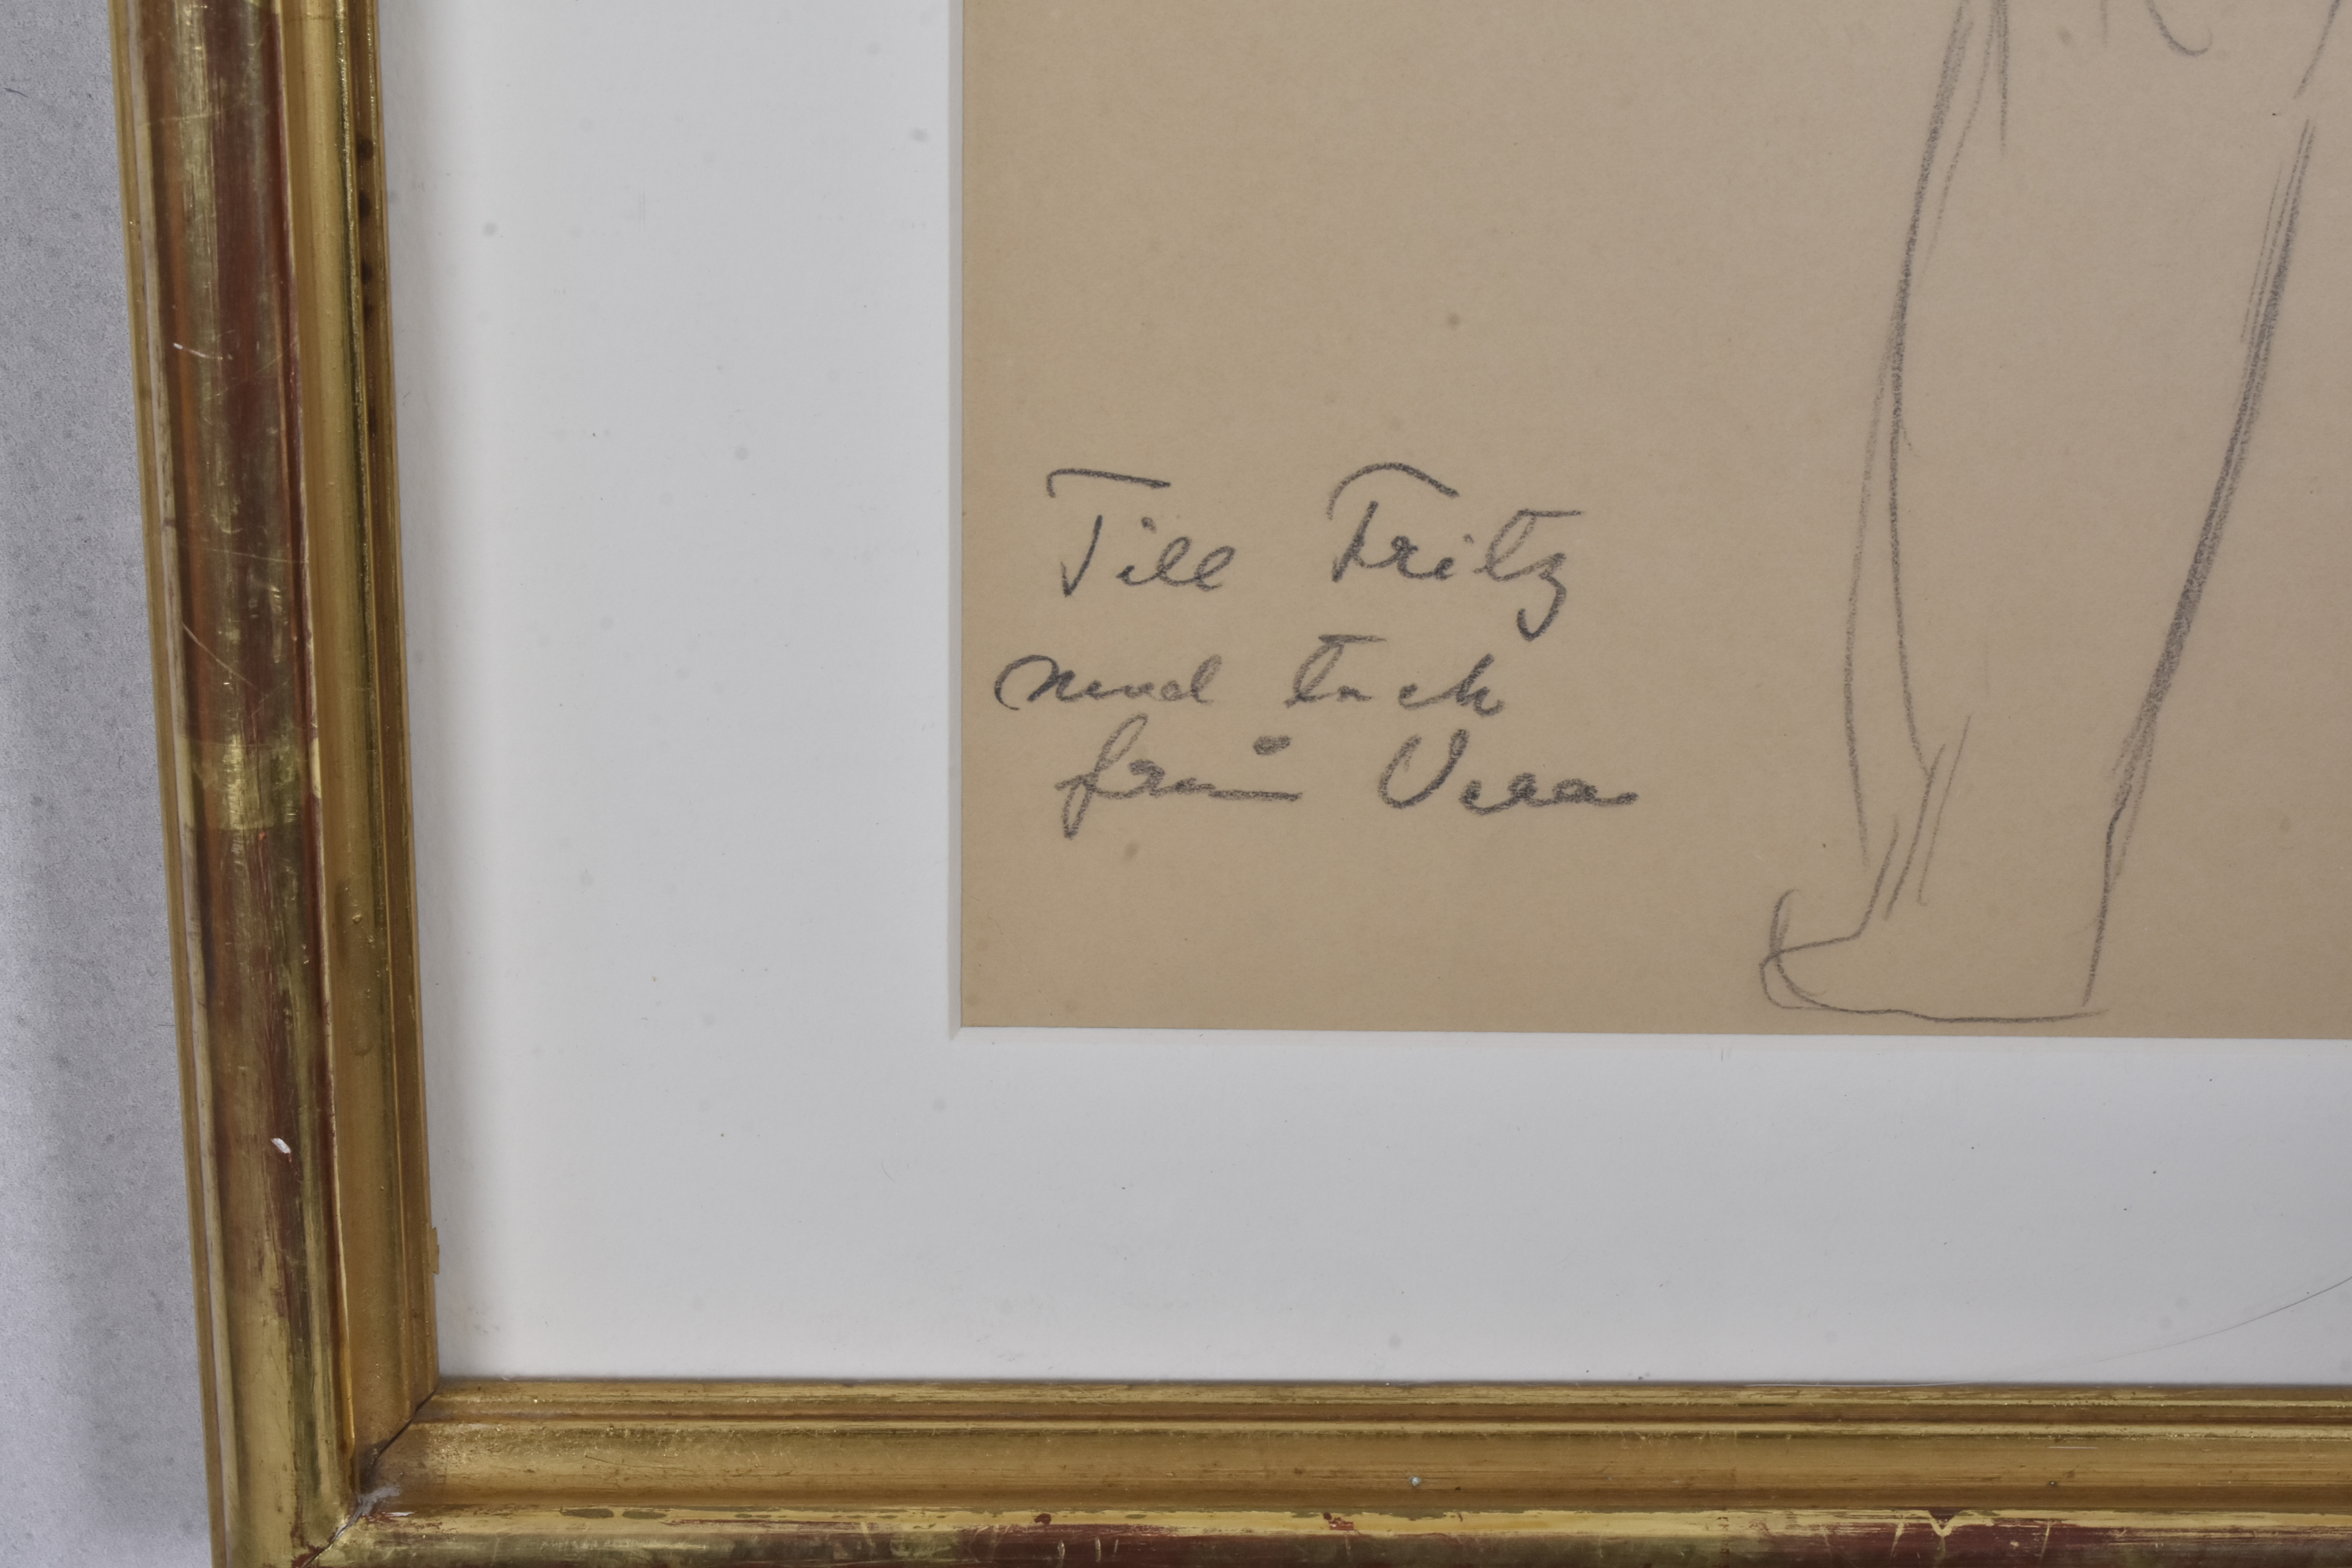 Till Fritz
med tack
från Vera